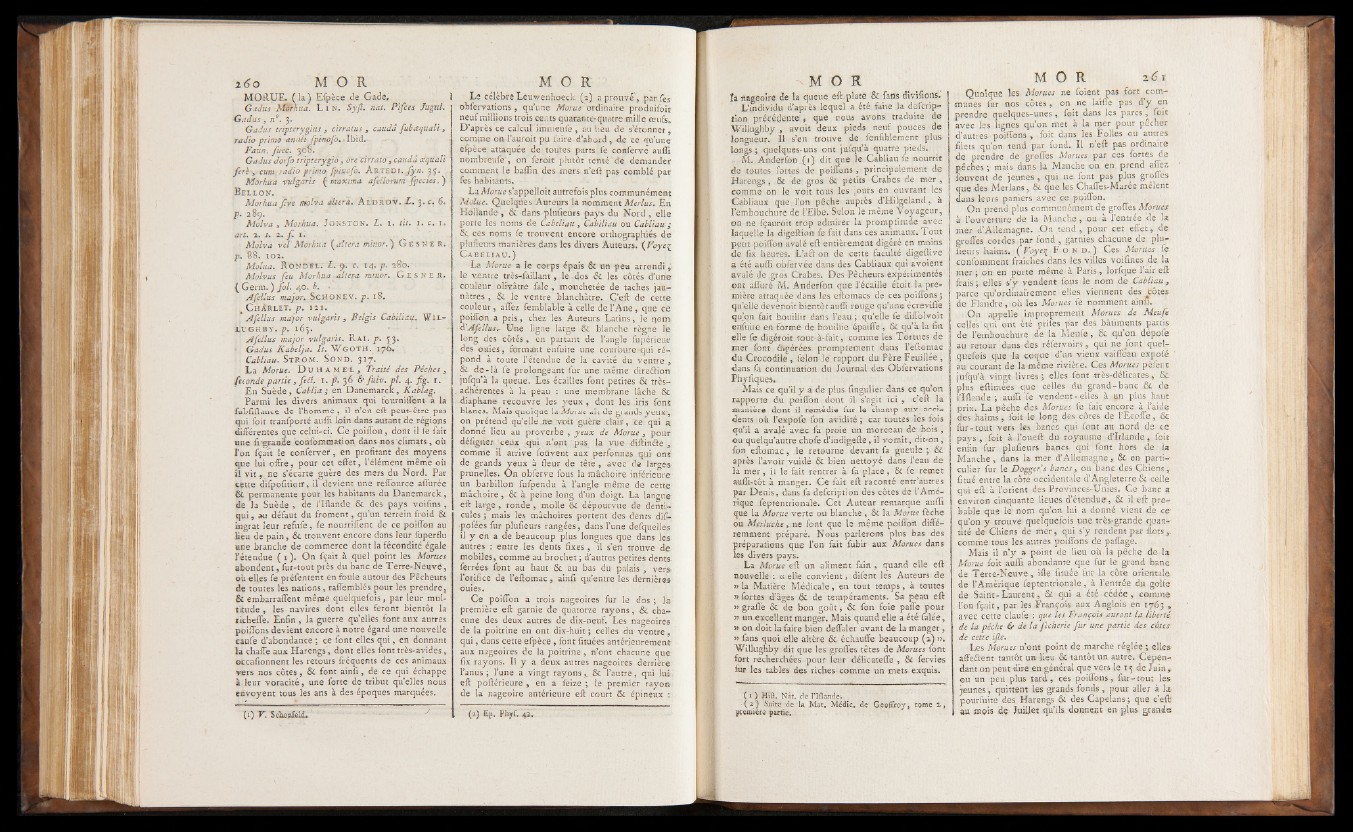 260 M O R
MORUE. (la) Espèce de Gade.
Gadus Morhua. LIN. Syst. nat. Pisces Jugul.
Gadus, n°. 3.
Gadus tripterygius, cirratus, caudâ subæquali,
radio primo anali spinoso. Ibid.
Faun. suec. 308.
Gadus dorso tripterygio, ore cirrato, caudâ æquali
ferè, cum radio primo spinoso. ARTEDI. syn. 35.
Morhua vulgaris (maxima asellorum species.)
BELLON.
Morhua sive molva altera. ALDROV. L. 3. c. 6.
p. 289.
Molva, Morhua. JONSTON. L. 1. tit. 1. c. 1.
art. 2. t. 2. f. 1.
Molva vel Morhua (altera minor.) GESNER.
p. 88. 102.
Molua. RONDEL. L. 9. c. 14. p. 280.
Molvus seu Morhua altera minor. GESNER.
(Germ.) fol. 40. b.
Asellus major. SCHONEV. p. 18.
CHARLET. p. 121.
Asellus major vulgaris, Belgis Cabiliau. WIL-
LUGHBY. p. 165.
Asellus major vulgaris. RAI. p. 53.
Gadus Kabelja. It. WGOTH. 176.
Cablau. STROM. SONDM. 317.
La Morue. DUHAMEL, Traité des Pêches,
seconde partie, sect. 1. p. 36 & suiv. pl. 4. fig. 1.
En Suède, Cablia; en Danemarck, Kablag.
Parmi les divers animaux qui fournissent à la
subsistance de l'homme, il n'en est peut-être pas
qui soit transporté aussi loin dans autant de régions
différentes que celui-ci. Ce poisson, dont il se fait
une si grande consommation dans nos climats, où
l'on sçait le conserver, en profitant des moyens
que lui offre, pour cet effet, l'élément même où
il vit, ne s'écarte guère des mers du Nord. Par
cette disposition, il devient une ressource assurée
& permanente pour les habitants du Danemarck,
de la Suède, de l'Islande & des pays voisins,
qui, au défaut du froment, qu'un terrein froid &
ingrat leur refuse, se nourrissent de ce poisson au
lieu de pain, & trouvent encore dans leur superflu
une branche de commerce dont la fécondité égale
l'étendue (1). On sçait à quel point les Morues
abondent, sur-tout près du banc de Terre-Neuve,
où elles se présentent en foule autour des Pêcheurs
de toutes les nations, rassemblés pour les prendre,
& embarrassent même quelquefois, par leur mul-
titude, les navires dont elles feront bientôt la
richesse. Enfin, la guerre qu'elles font aux autres
poissons devient encore à notre égard une nouvelle
cause d'abondance; ce sont elles qui, en donnant
la chasse aux Harengs, dont elles sont très-avides,
occasionnent les retours fréquents de ces animaux
vers nos côtes, & font ainsi, de ce qui échappe
à leur voracité, une sorte de tribut qu'elles nous
envoyent tous les ans à des époques marquées.
(1) V. Schonfeld.
M O R
Le célèbre Leuwenhoeck (2) a prouvé, par ses
observations, qu'une Morue ordinaire produisoit
neuf millions trois cents quarante-quatre mille œufs.
D'après ce calcul immense, au lieu de s'étonner,
comme on l'auroit pu faire d'abord, de ce qu'une
espèce attaquée de toutes parts se conserve aussi
nombreuse, on seroit plutôt tenté de demander
comment le bassin des mers n'est pas comblé par
ses habitants.
La Morue s'appelloit autrefois plus communément
Molue. Quelques Auteurs la nomment Merlus. En
Hollande, & dans plusieurs pays du Nord, elle
porte les noms de Cabelian, Cabiliau ou Cabliau;
& ces noms se trouvent encore orthographiés de
plusieurs manières dans les divers Auteurs. (Voyez
CABELIAU.)
La Morue a le corps épais & un peu arrondi,
le ventre très-saillant, le dos & les côtés d'une
couleur olivâtre sale, mouchetée de taches jau-
nâtres, & le ventre blanchâtre. C'est de cette
couleur, assez semblable à celle de l'Ane, que ce
poisson a pris, chez les Auteurs Latins, le nom
d'Asellus. Une ligne large & blanche règne le
long des côtés, en partant de l'angle supérieur
des ouies, formant ensuite une courbure qui ré-
pond à toute l'étendue de la cavité du ventre,
& de-là se prolongeant sur une même direction
jusqu'à la queue. Les écailles sont petites & très-
adhérentes à la peau: une membrane lâche &
diaphane recouvre les yeux, dont les iris sont
blancs. Mais quoique la Morue ait de grands yeux,
on prétend qu'elle ne voit guère clair, ce qui a
donné lieu au proverbe, yeux de Morue, pour
désigner ceux qui n'ont pas la vue distincte,
comme il arrive souvent aux personnes qui ont
de grands yeux à fleur de tête, avec de larges
prunelles. On observe sous la mâchoire inférieure
un barbillon suspendu à l'angle même de cette
mâchoire, & à peine long d'un doigt. La langue
est large, ronde, molle & dépourvue de denti-
cules; mais les mâchoires portent des dents dis-
posées sur plusieurs rangées, dans l'une desquelles
il y en a de beaucoup plus longues que dans les
autres: entre les dents fixes, il s'en trouve de
mobiles, comme au brochet; d'autres petites dents
serrées sont au haut & au bas du palais, vers
l'orifice de l'estomac, ainsi qu'entre les dernières
ouies.
Ce poisson a trois nageoires sur le dos; la
première est garnie de quatorze rayons, & cha-
cune des deux autres de dix-neuf. Les nageoires
de la poitrine en ont dix-huit; celles du ventre,
qui, dans cette espèce, sont situées antérieurement
aux nageoires de la poitrine, n'ont chacune que
six rayons. Il y a deux autres nageoires derrière
l'anus; l'une a vingt rayons, & l'autre, qui lui
est postérieure, en a seize; le premier rayon
de la nageoire antérieure est court & épineux:
(2) Ep. Phys. 42.
M O R
la nageoire de la queue est plate & sans divisions.
L'individu d'après lequel a été faite la descrip-
tion précédente, que nous avons traduite de
Willughby, avoit deux pieds neuf pouces de
longueur. Il s'en trouve de sensiblement plus
longs; quelques-uns ont jusqu'à quatre pieds.
M. Anderson (1) dit que le Cabliau se nourrit
de toutes sortes de poissons, principalement de
Harengs, & de gros & petits Crabes de mer,
comme on le voit tous les jours en ouvrant les
Cabliaux que l'on pêche auprès d'Hilgeland, à
l'embouchure de l'Elbe. Selon le même Voyageur,
on ne sçauroit trop admirer la promptitude avec
laquelle la digestion se fait dans ces animaux. Tout
peut poisson avalé est entièrement digéré en moins
de six heures. L'act on de cette faculté digestive
a été aussi observée dans des Cabliaux qui avoient
avalé de gros Crabes. Des Pêcheurs expérimentés
ont assuré M. Anderson que l'écaille étoit la pre-
mière attaquée dans les estomacs de ces poissons;
qu'elle devenoit bientôt aussi rouge qu'une écrevisse
qu'on fait bouillir dans l'eau; qu'elle se dissolvoit
ensuite en forme de bouillie épaisse, & qu'à la fin
elle se digéroit tout-à-fait, comme les Tortues de
mer sont digérées promptement dans l'estomac
du Crocodile, selon le rapport du Père Feuillée,
dans sa continuation du Journal des Observations
Physiques.
Mais ce qu'il y a de plus singulier dans ce qu'on
rapporte du poisson dont il s'agit ici, c'est la
manière dont il remédie sur le champ aux acci-
dents où l'expose son avidité; car toutes les fois
qu'il a avalé avec sa proie un morceau de bois,
ou quelqu'autre chose d'indigeste, il vomit, dit-on,
son estomac, le retourne devant sa gueule; &
après l'avoir vuidé & bien nettoyé dans l'eau de
la mer, il le fait rentrer à sa place, & se remet
aussi-tôt à manger. Ce fait est raconté entr'autres
par Denis, dans sa description des côtes de l'Amé-
rique septentrionale. Cet Auteur remarque aussi
que la Morue verte ou blanche, & la Morue sèche
ou Merluche, ne sont que le même poisson diffé-
remment préparé. Nous parlerons plus bas des
préparations que l'on fait subir aux Morues dans
les divers pays.
La Morue est un aliment sain, quand elle est
nouvelle: « elle convient, disent les Auteurs de
» la Matière Médicale, en tout temps, à toutes
» sortes d'âges & de tempéraments. Sa peau est
» grasse & de bon goût, & son foie passe pour
» un excellent manger. Mais quand elle a été salée,
» on doit la faire bien dessaler avant de la manger,
» sans quoi elle altère & échauffe beaucoup (2) ».
Willughby dit que les grosses têtes de Morues sont
fort recherchées pour leur délicatesse, & servies
sur les tables des riches comme un mets exquis.
(1) Hist. Nat. de l'Islande.
(2) Suite de la Mat. Médic. de Geoffroy, tome 2,
première partie.
M O R 261
Quoique les Morues ne soient pas fort com-
munes sur nos côtes, on ne laisse pas d'y en
prendre quelques-unes, soit dans les parcs, soit
avec les lignes qu'on met à la mer pour pêcher
d'autres poissons, soit dans les Folles ou autres
filets qu'on tend par fond. Il n'est pas ordinaire
de prendre de grosses Morues par ces sortes de
pêches; mais dans la Manche on en prend assez
souvent de jeunes, qui ne sont pas plus grosses
que des Merlans, & que les Chasses-Marée mêlent
dans leurs paniers avec ce poisson.
On prend plus communément de grosses Morues
à l'ouverture de la Manche, ou à l'entrée de la
mer d'Allemagne. On tend, pour cet effet, de
grosses cordes par fond, garnies chacune de plu-
sieurs haims. (Voyez FOND.) Ces Morues se
consomment fraîches dans les villes voisines de la
mer; on en porte même à Paris, lorsque l'air est
frais; elles s'y vendent sous le nom de Cabliau,
parce qu'ordinairement elles viennent des côtes
de Flandre, où les Morues se nomment ainsi.
On appelle improprement Morues de Meuse
celles qui ont été prises par des bâtiments partis
de l'embouchure de la Meuse, & qu'on dépose
au retour dans des réservoirs, qui ne sont quel-
quefois que la coque d'un vieux vaisseau exposé
au courant de la même rivière. Ces Morues pèsent
jusqu'à vingt livres; elles sont très-délicates, &
plus estimées que celles du grand-banc & de
l'Islande; aussi se vendent-elles à un plus haut
prix. La pêche des Morues se fait encore à l'aide
des haims, soit le long des côtes de l'Ecosse, &
sur-tout vers les bancs qui sont au nord de ce
pays, soit à l'ouest du royaume d'Irlande, soit
enfin sur plusieurs bancs qui sont hors de la
Manche, dans la mer d'Allemagne, & en parti-
culier sur le Dogger's bancs, ou banc des Chiens,
situé entre la côte occidentale d'Angleterre & celle
qui est à l'orient des Provinces-Unies. Ce banc a
environ cinquante lieues d'étendue, & il est pro-
bable que le nom qu'on lui a donné vient de ce
qu'on y trouve quelquefois une très-grande quan-
tité de Chiens de mer, qui s'y rendent par flots,
comme tous les autres poissons de passage.
Mais il n'y a point de lieu où la pêche de la
Morue soit aussi abondante que sur le grand banc
de Terre-Neuve, isle située sur la côte orientale
de l'Amérique septentrionale, à l'entrée du golfe
de Saint-Laurent, & qui a été cédée, comme
l'on sçait, par les François aux Anglois en 1763,
avec cette clause: que les François auront la liberté
de la pêche & de la sècherie sur une partie des côtes
de cette isle.
Les Morues n'ont point de marche réglée; elles
affectent tantôt un lieu & tantôt un autre. Cepen-
dant on peut dire en général que vers le 15 de Juin,
ou un peu plus tard, ces poissons, sur-tout les
jeunes, quittent les grands fonds, pour aller à la
poursuite des Harengs & des Capelans; que c'est
au mois de Juillet qu'ils donnent en plus grande